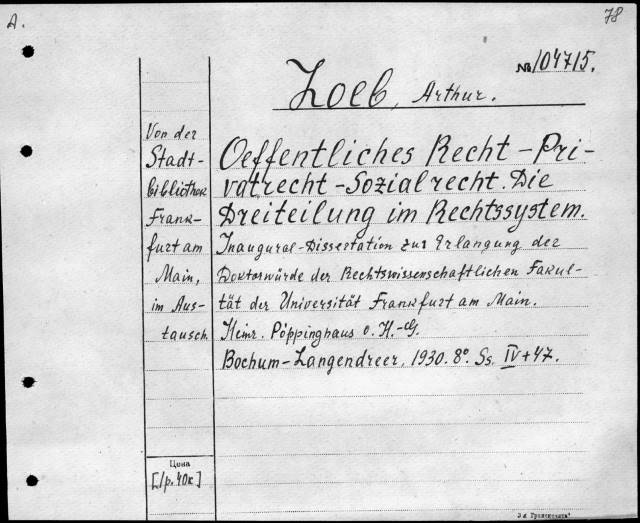 A.
78
№ 104715.
Loeb, Arthur.
Von der
Stadt-
bibliothek
Frank-
furt am
Main,
im Aus-
tausch.
Oeffentliches Recht – Pri-
vatrecht – Sozialrecht. Die
Dreiteilung im Rechtssystem.
Inaugural-Dissertation zur Erlangung der
Doktorwürde der Rechtswissenschaftlichen Fakul-
tät der Universität Frankfurt am Main.
Heinr. Pöppinghaus o. H.-G.
Bochum-Langendreer, 1930. 8°. Ss. IV + 47.
Цена
[1р. 40к.]